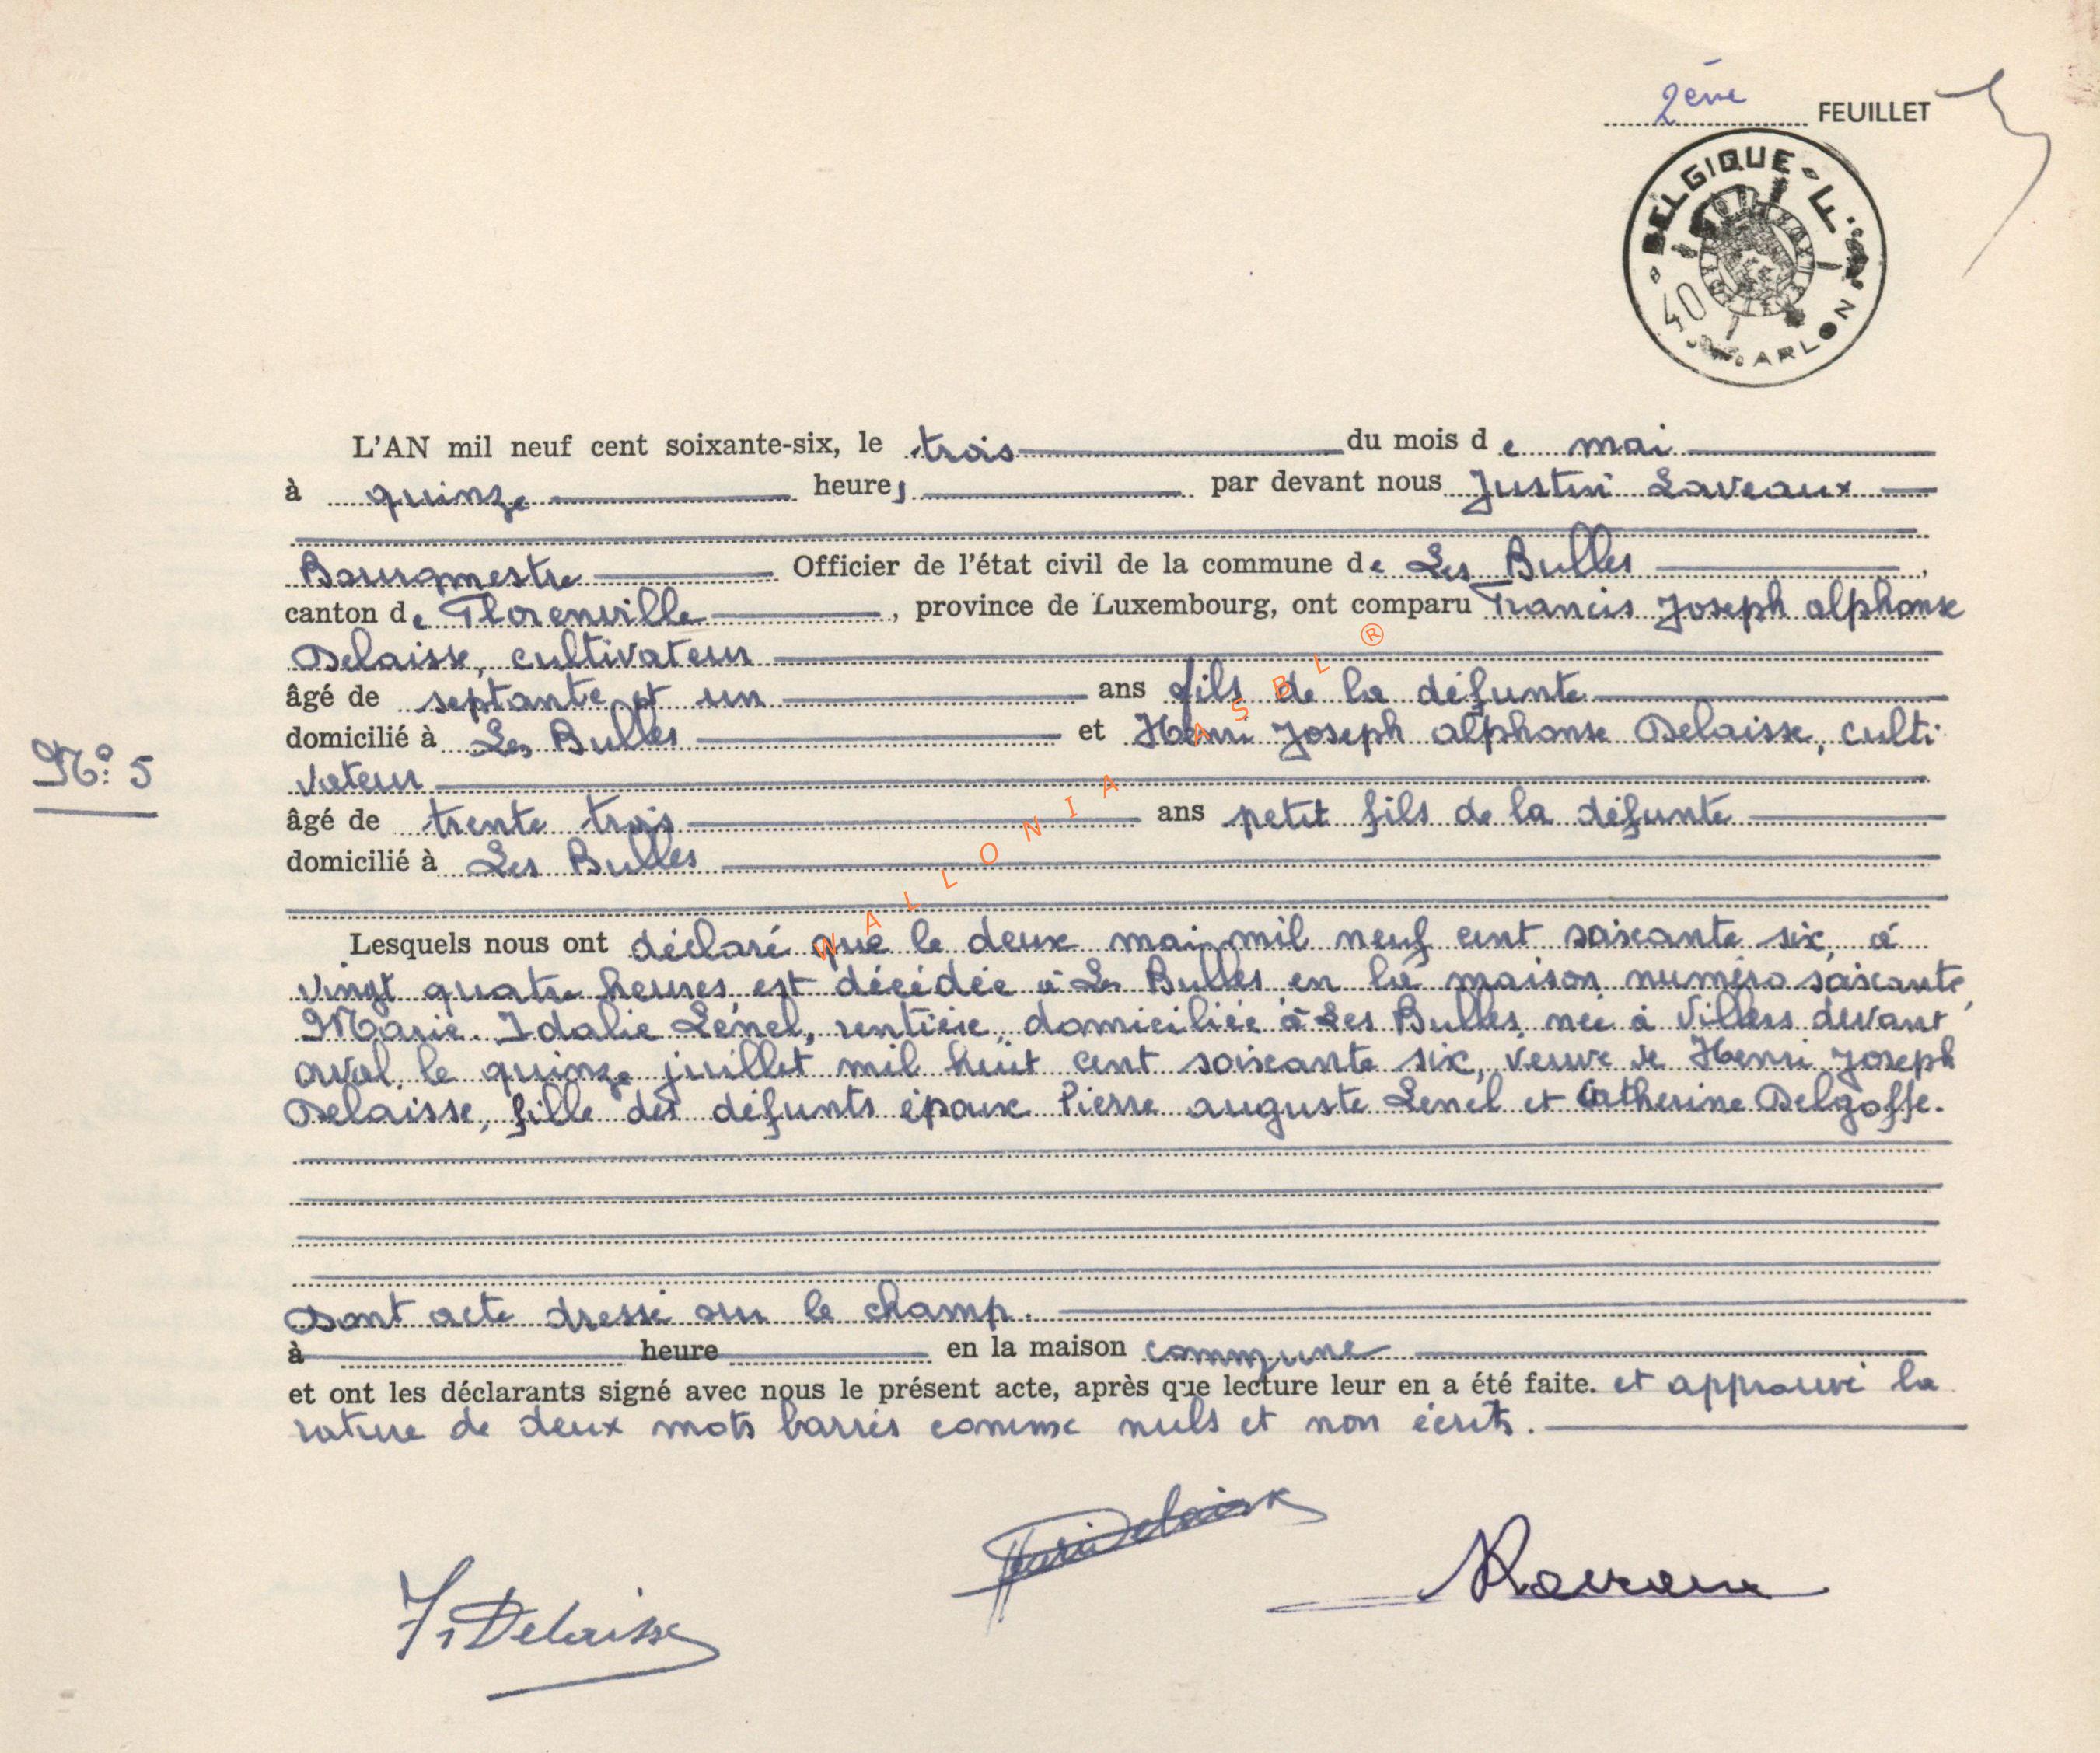 2ème FEUILLET
BELGIQUE - F.
40
ARLON
L'AN mil neuf cent soixante-six, le trois du mois de mai
à quinze heures par devant nous Justin Laveaux
Bourgmestre Officier de l'état civil de la commune de Les Bulles,
canton de Florenville, province de Luxembourg, ont comparu Francis Joseph alphonse
Delaisse, cultivateur
âgé de septante et un ans fils de la défunte
domicilié à Les Bulles et Henri Joseph alphonse Delaisse, culti-
N° 5
vateur
âgé de trente trois ans petit fils de la défunte
domicilié à Les Bulles
Lesquels nous ont déclaré que le deux mai mil neuf cent soixante six, à
vingt quatre heures est décédée à Les Bulles en la maison numéro soixante,
Marie Idalie Lénel, rentière, domiciliée à Les Bulles née à Villers devant
orval, le quinze juillet mil huit cent soixante six, veuve de Henri Joseph
Delaisse, fille des défunts époux Pierre auguste Lenel et Catherine Delgoffe.
Dont acte dressé sur le champ.
à heure en la maison commune
et ont les déclarants signé avec nous le présent acte, après que lecture leur en a été faite. et approuvé la
rature de deux mots barrés comme nuls et non écrits.
Henri Delaisse
F. Delaisse
WALLONIA ASBL ®